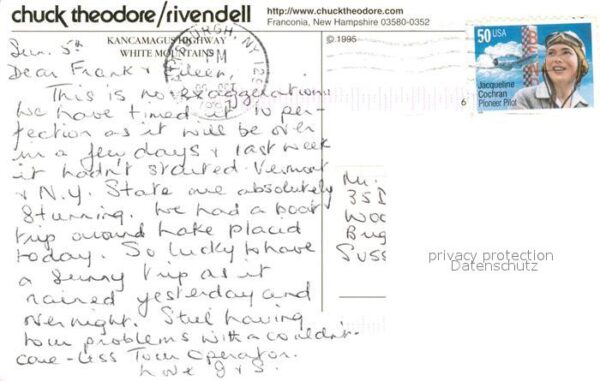 chuck theodore/rivendell
http://www.chucktheodore.com
Franconia, New Hampshire 03580-0352
KANCAMAGUS HIGHWAY
WHITE MOUNTAINS
© 1996
NY 129
PM
50 USA
Jacqueline
Cochran
Pioneer Pilot
6
Sun. 5th
Dear Frank & Eileen,
This is no exaggeration
we have timed it to per-
fection as it will be over
in a few days & last week
it hadn't started. Vermont
& N.Y. State are absolutely
stunning. We had a boat
trip around Lake Placid
today. So lucky to have
a sunny trip as it
rained yesterday and
overnight. Still having
tour problems with a couldn't-
care-less Tour Operator.
Love J & S.
Mr.
35
Woo
Brig
Suss
privacy protection
Datenschutz